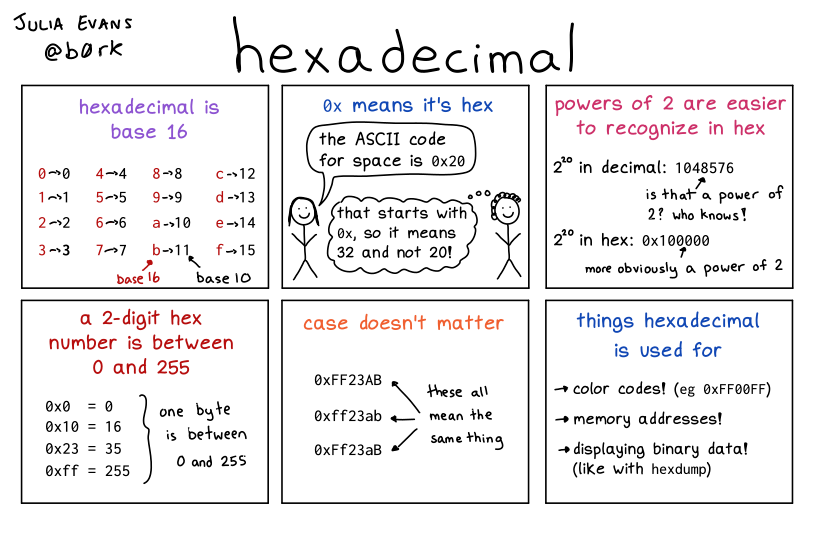 JULIA EVANS
@b0rk
hexadecimal
hexadecimal is
base 16
0→0 4→4 8→8 c→12
1→1 5→5 9→9 d→13
2→2 6→6 a→10 e→14
3→3 7→7 b→11 f→15
base 16 base 10
0x means it's hex
the ASCII code
for space is 0x20
that starts with
0x, so it means
32 and not 20!
powers of 2 are easier
to recognize in hex
2²⁰ in decimal: 1048576
is that a power of
2? who knows!
2²⁰ in hex: 0x100000
more obviously a power of 2
a 2-digit hex
number is between
0 and 255
0x0 = 0
0x10 = 16
0x23 = 35
0xff = 255
one byte
is between
0 and 255
case doesn't matter
0xFF23AB
0xff23ab
0xFf23aB
these all
mean the
same thing
things hexadecimal
is used for
→ color codes! (eg 0xFF00FF)
→ memory addresses!
→ displaying binary data!
(like with hexdump)